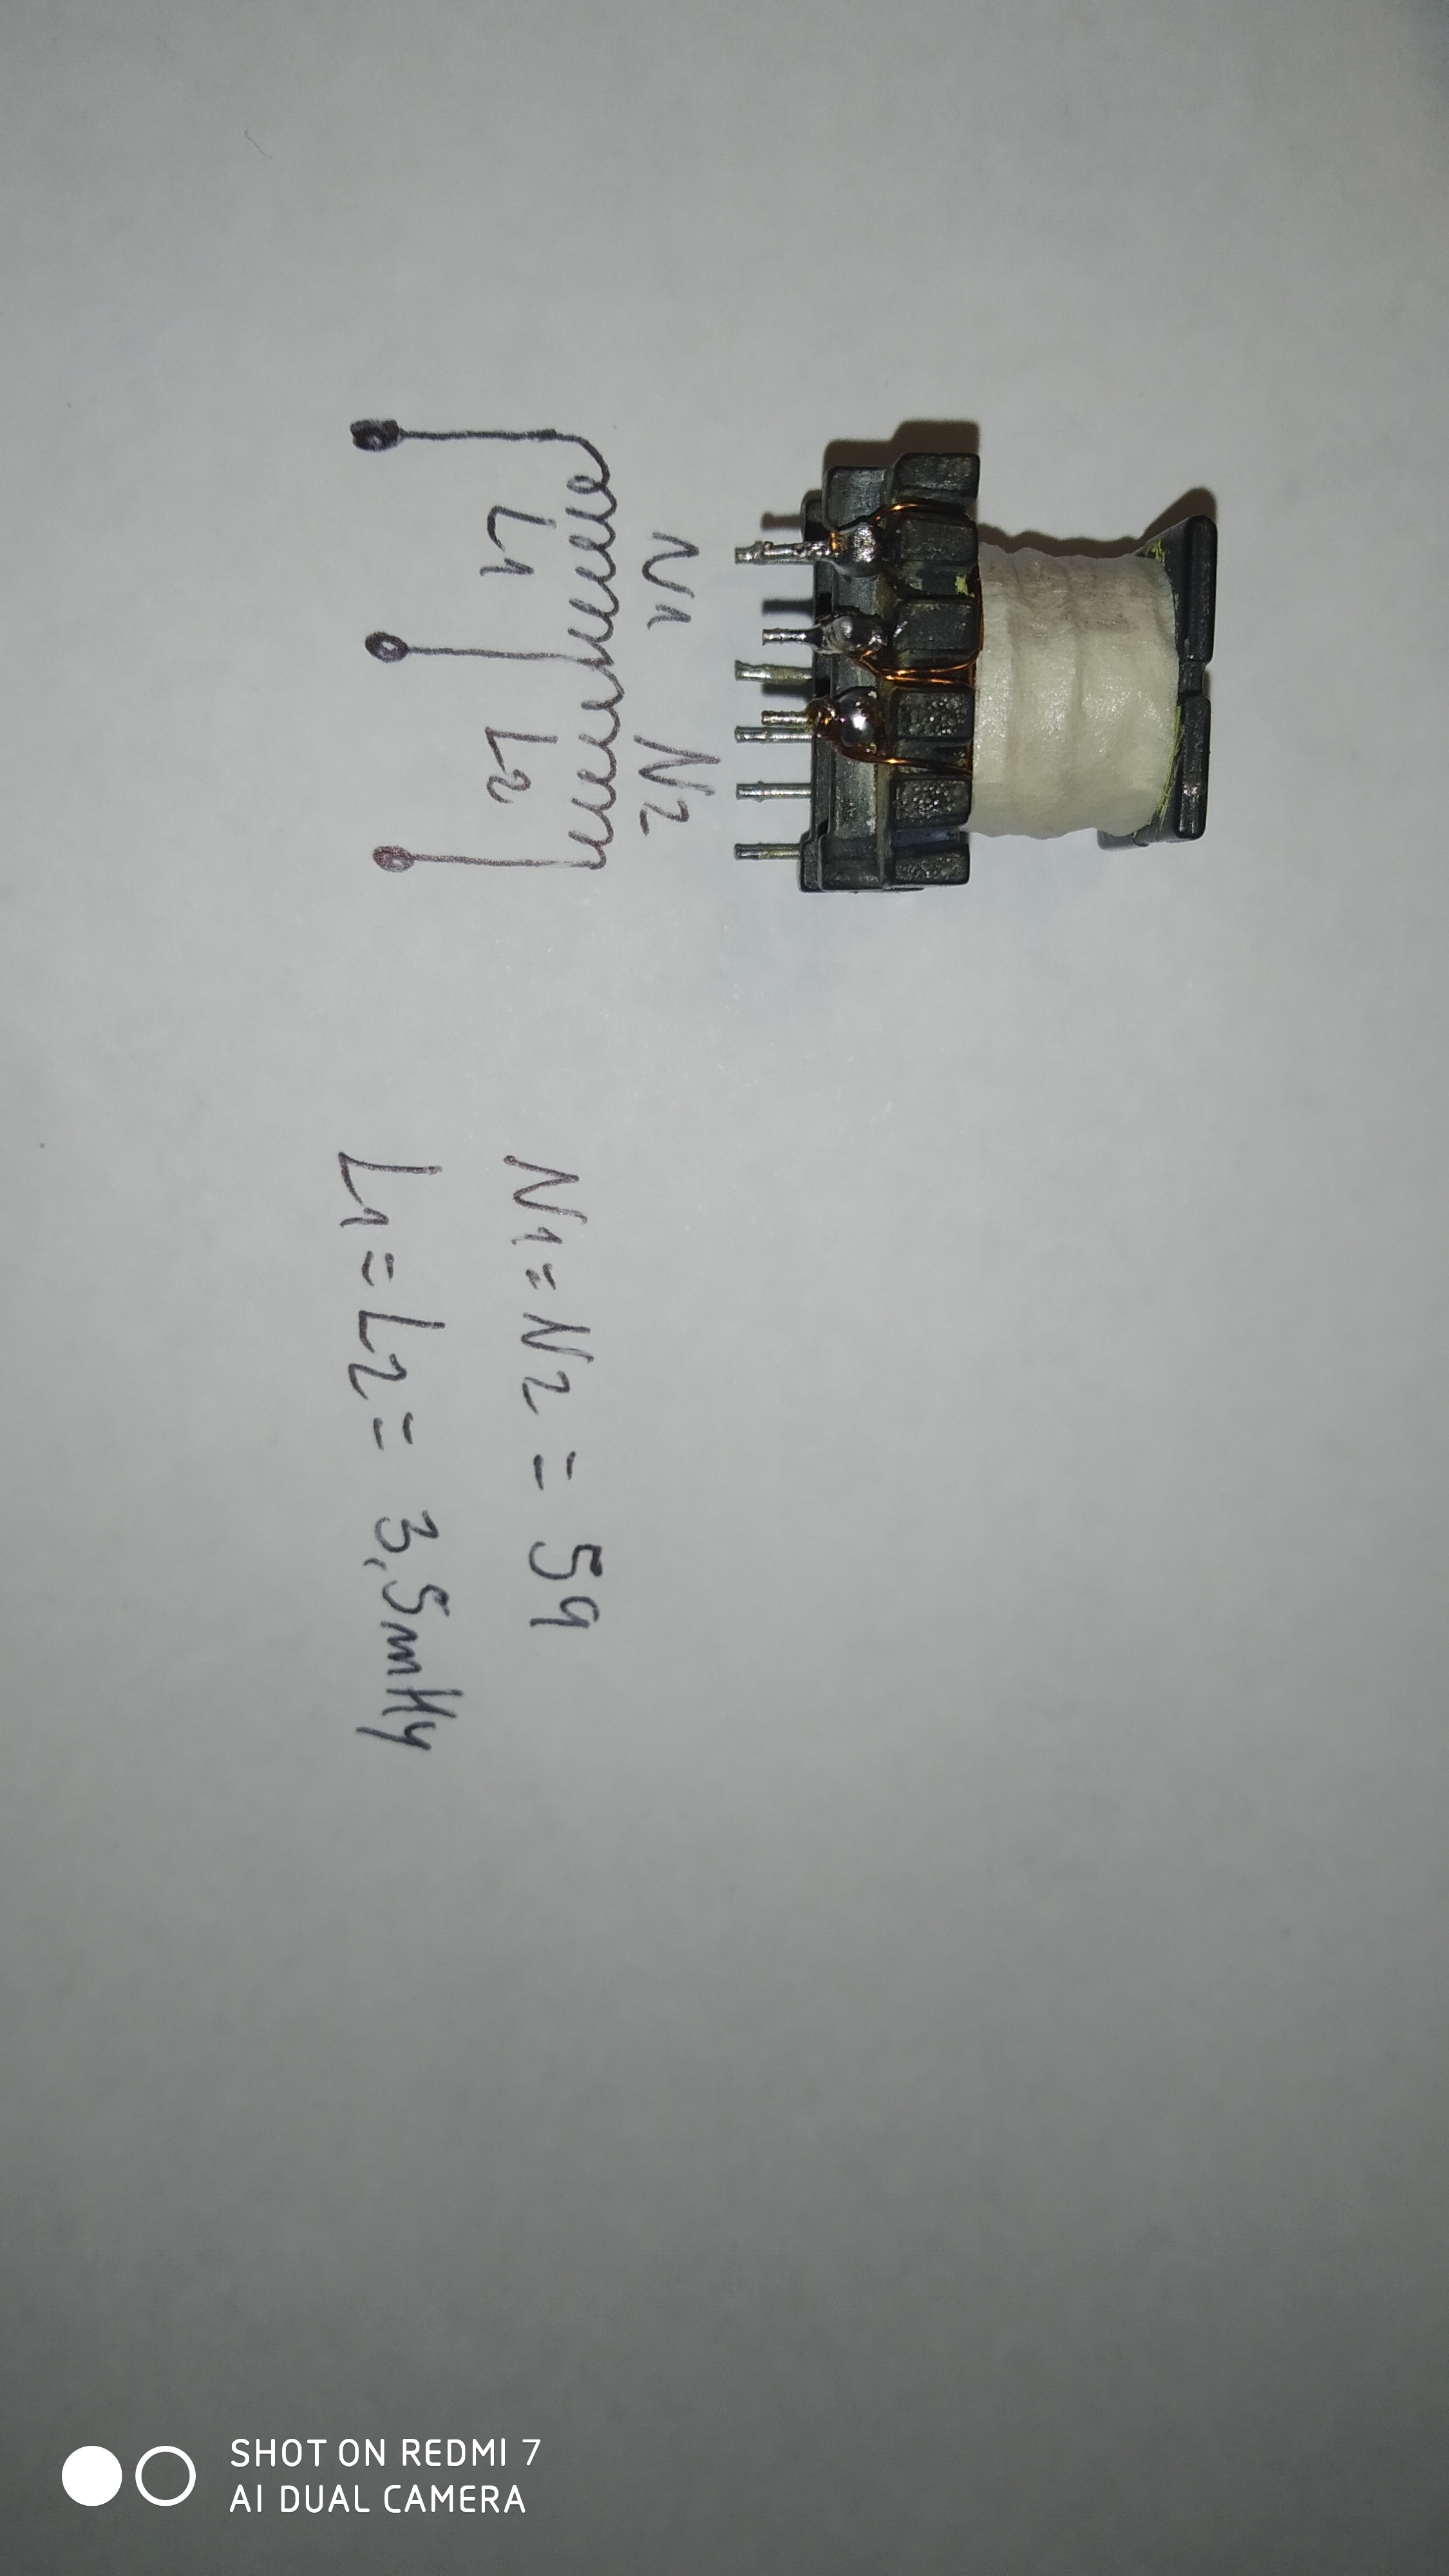 N1 N2
L1 L2
N1 = N2 = 59
L1 = L2 = 3,5mHy
SHOT ON REDMI 7
AI DUAL CAMERA